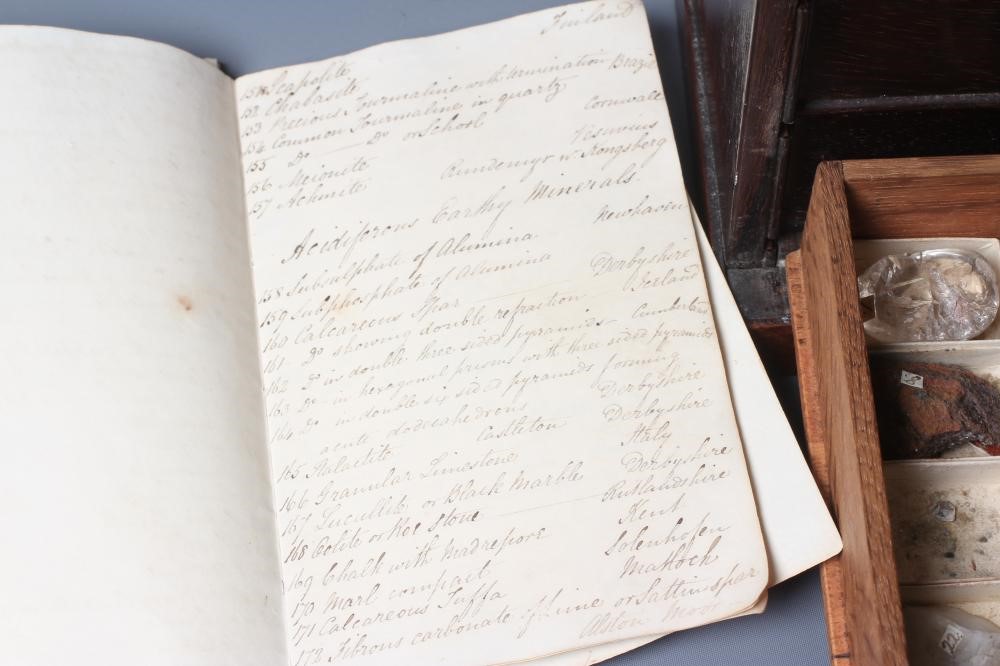 Finland
151 Scapolite
152 Chabasite
153 Precious Tourmaline with termination Brazil
154 Common Tourmaline in quartz
155 Do — Do or Schorl Cornwall
156 Meionite Vesuvius
157 Achmite Rundemyr nr Kongsberg
Acidiferous Earthy Minerals
158 Subsulphate of Alumina Newhaven
159 Subphosphate of Alumina
160 Calcareous Spar Derbyshire
161 Do showing double refraction Iceland
162 Do in double three sided pyramids
163 Do in hexagonal prisms with three sided pyramids
164 Do in double six sided pyramids forming
acute dodecahedrons Derbyshire
165 Stalactite Castleton Derbyshire
166 Granular Limestone Italy
167 Lucullite or Black Marble Derbyshire
168 Oolite or Roe stone Rutlandshire
169 Chalk with Madrepore Kent
170 Marl compact Solenhofen
171 Calcareous Tuffa Matlock
172 Fibrous carbonate of Lime or Sattin spar
Alston Moor